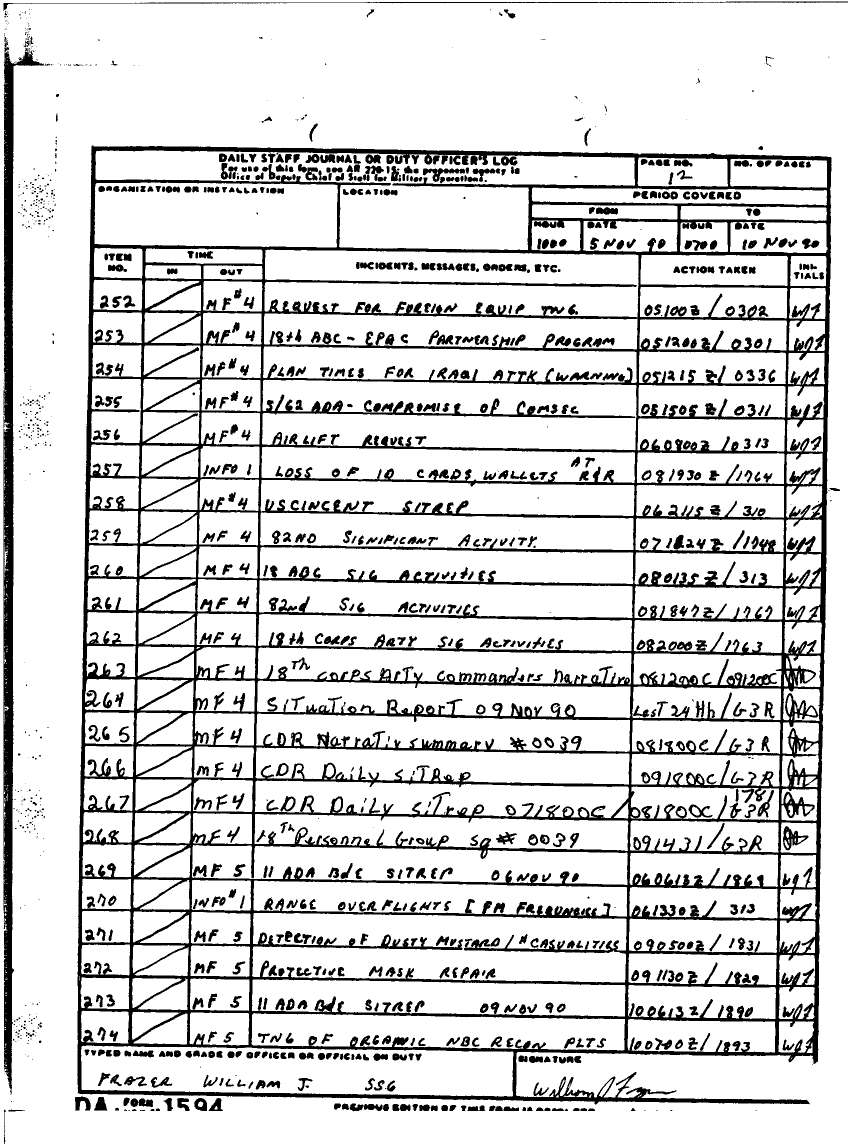 DAILY STAFF JOURNAL OR DUTY OFFICER'S LOG
For use of this form, see AR 220-15; the proponent agency is
Office of Deputy Chief of Staff for Military Operations.
PAGE NO.
12
NO. OF PAGES
ORGANIZATION OR INSTALLATION
LOCATION
PERIOD COVERED
FROM TO
HOUR DATE HOUR DATE
1000 5 NOV 90 0700 10 NOV 90
ITEM NO. TIME IN OUT INCIDENTS, MESSAGES, ORDERS, ETC. ACTION TAKEN INI-TIALS
252 MF#4 REQUEST FOR FOREIGN EQUIP TNG. 05100Z/0302 WJF
253 MF#4 18th ABC- EPAC PARTNERSHIP PROGRAM 051200Z/0301 WJF
254 MF#4 PLAN TIMES FOR IRAQI ATTK (WARNING) 051215Z/0336 WJF
255 MF#4 5/62 ADA- COMPROMISE OF COMSEC 051505Z/0311 WJF
256 MF#4 AIRLIFT REQUEST 060800Z/0313 WJF
257 INFO 1 LOSS OF ID CARDS, WALLETS AT R&R 081930Z/1764 WJF
258 MF#4 USCINCENT SITREP 062115Z/310 WJF
259 MF 4 82ND SIGNIFICANT ACTIVITY. /1748 WJF
260 MF 4 18 ABC SIG ACTIVITIES 080135Z/313 WJF
261 MF 4 82nd SIG ACTIVITIES 081847Z/1767 WJF
262 MF 4 18th CORPS ARTY SIG ACTIVITIES 082000Z/1763 WJF
263 mF 4 18Th corps Arty commanders Narrative 081200C/091200C
264 mF 4 SITuation RePorT 09 Nov 90 LasT 24 Hh/G3R
265 mF 4 CDR Narrativ summary #0039 081800C/G3R
266 mF 4 CDR Daily siTRep 091800C/G3R
267 mF4 CDR Daily siTrep 071800C/081800C/1781 G3R
268 mF4 18Th Personnel Group sq# 0039 091431/G3R
269 MF 5 11 ADA BdE SITREP 06 NOV 90 060613Z/1868 WJF
270 INFO#1 RANGE OVERFLIGHTS 061330Z/313 WJF
271 MF 5 DETECTION OF DUSTY MUSTARD/#CASUALITIES 090500Z/1831 WJF
272 MF 5 PROTECTIVE MASK REPAIR 091130Z/1829 WJF
273 MF 5 11 ADA BdE SITREP 09 NOV 90 100613Z/1890 WJF
274 MF 5 TNG OF ORGANIC NBC RECON PLTS 100700Z/1893 WJF
TYPED NAME AND GRADE OF OFFICER OR OFFICIAL ON DUTY
SIGNATURE
FRAZER WILLIAM J. SSG
DA FORM 1594